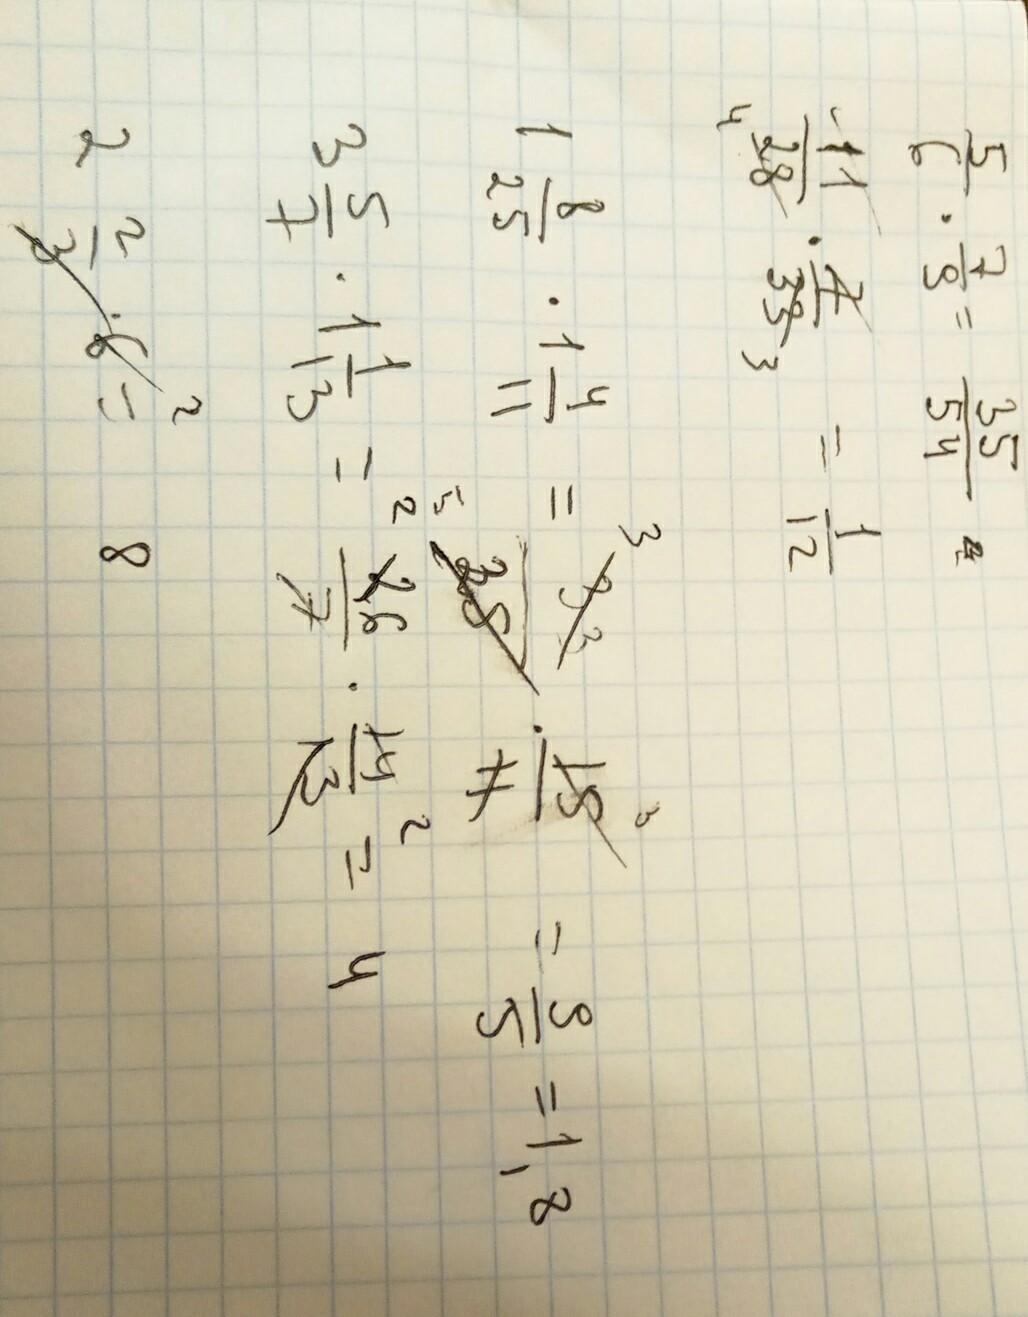 5/6 · 7/9 = 35/54
11/28 · 7/33 = 1/12
1 8/25 · 1 4/11 = 33/25 · 15/11 = 9/5 = 1,8
3 5/7 · 1 1/13 = 26/7 · 14/13 = 4
2 2/3 · 6 = 8